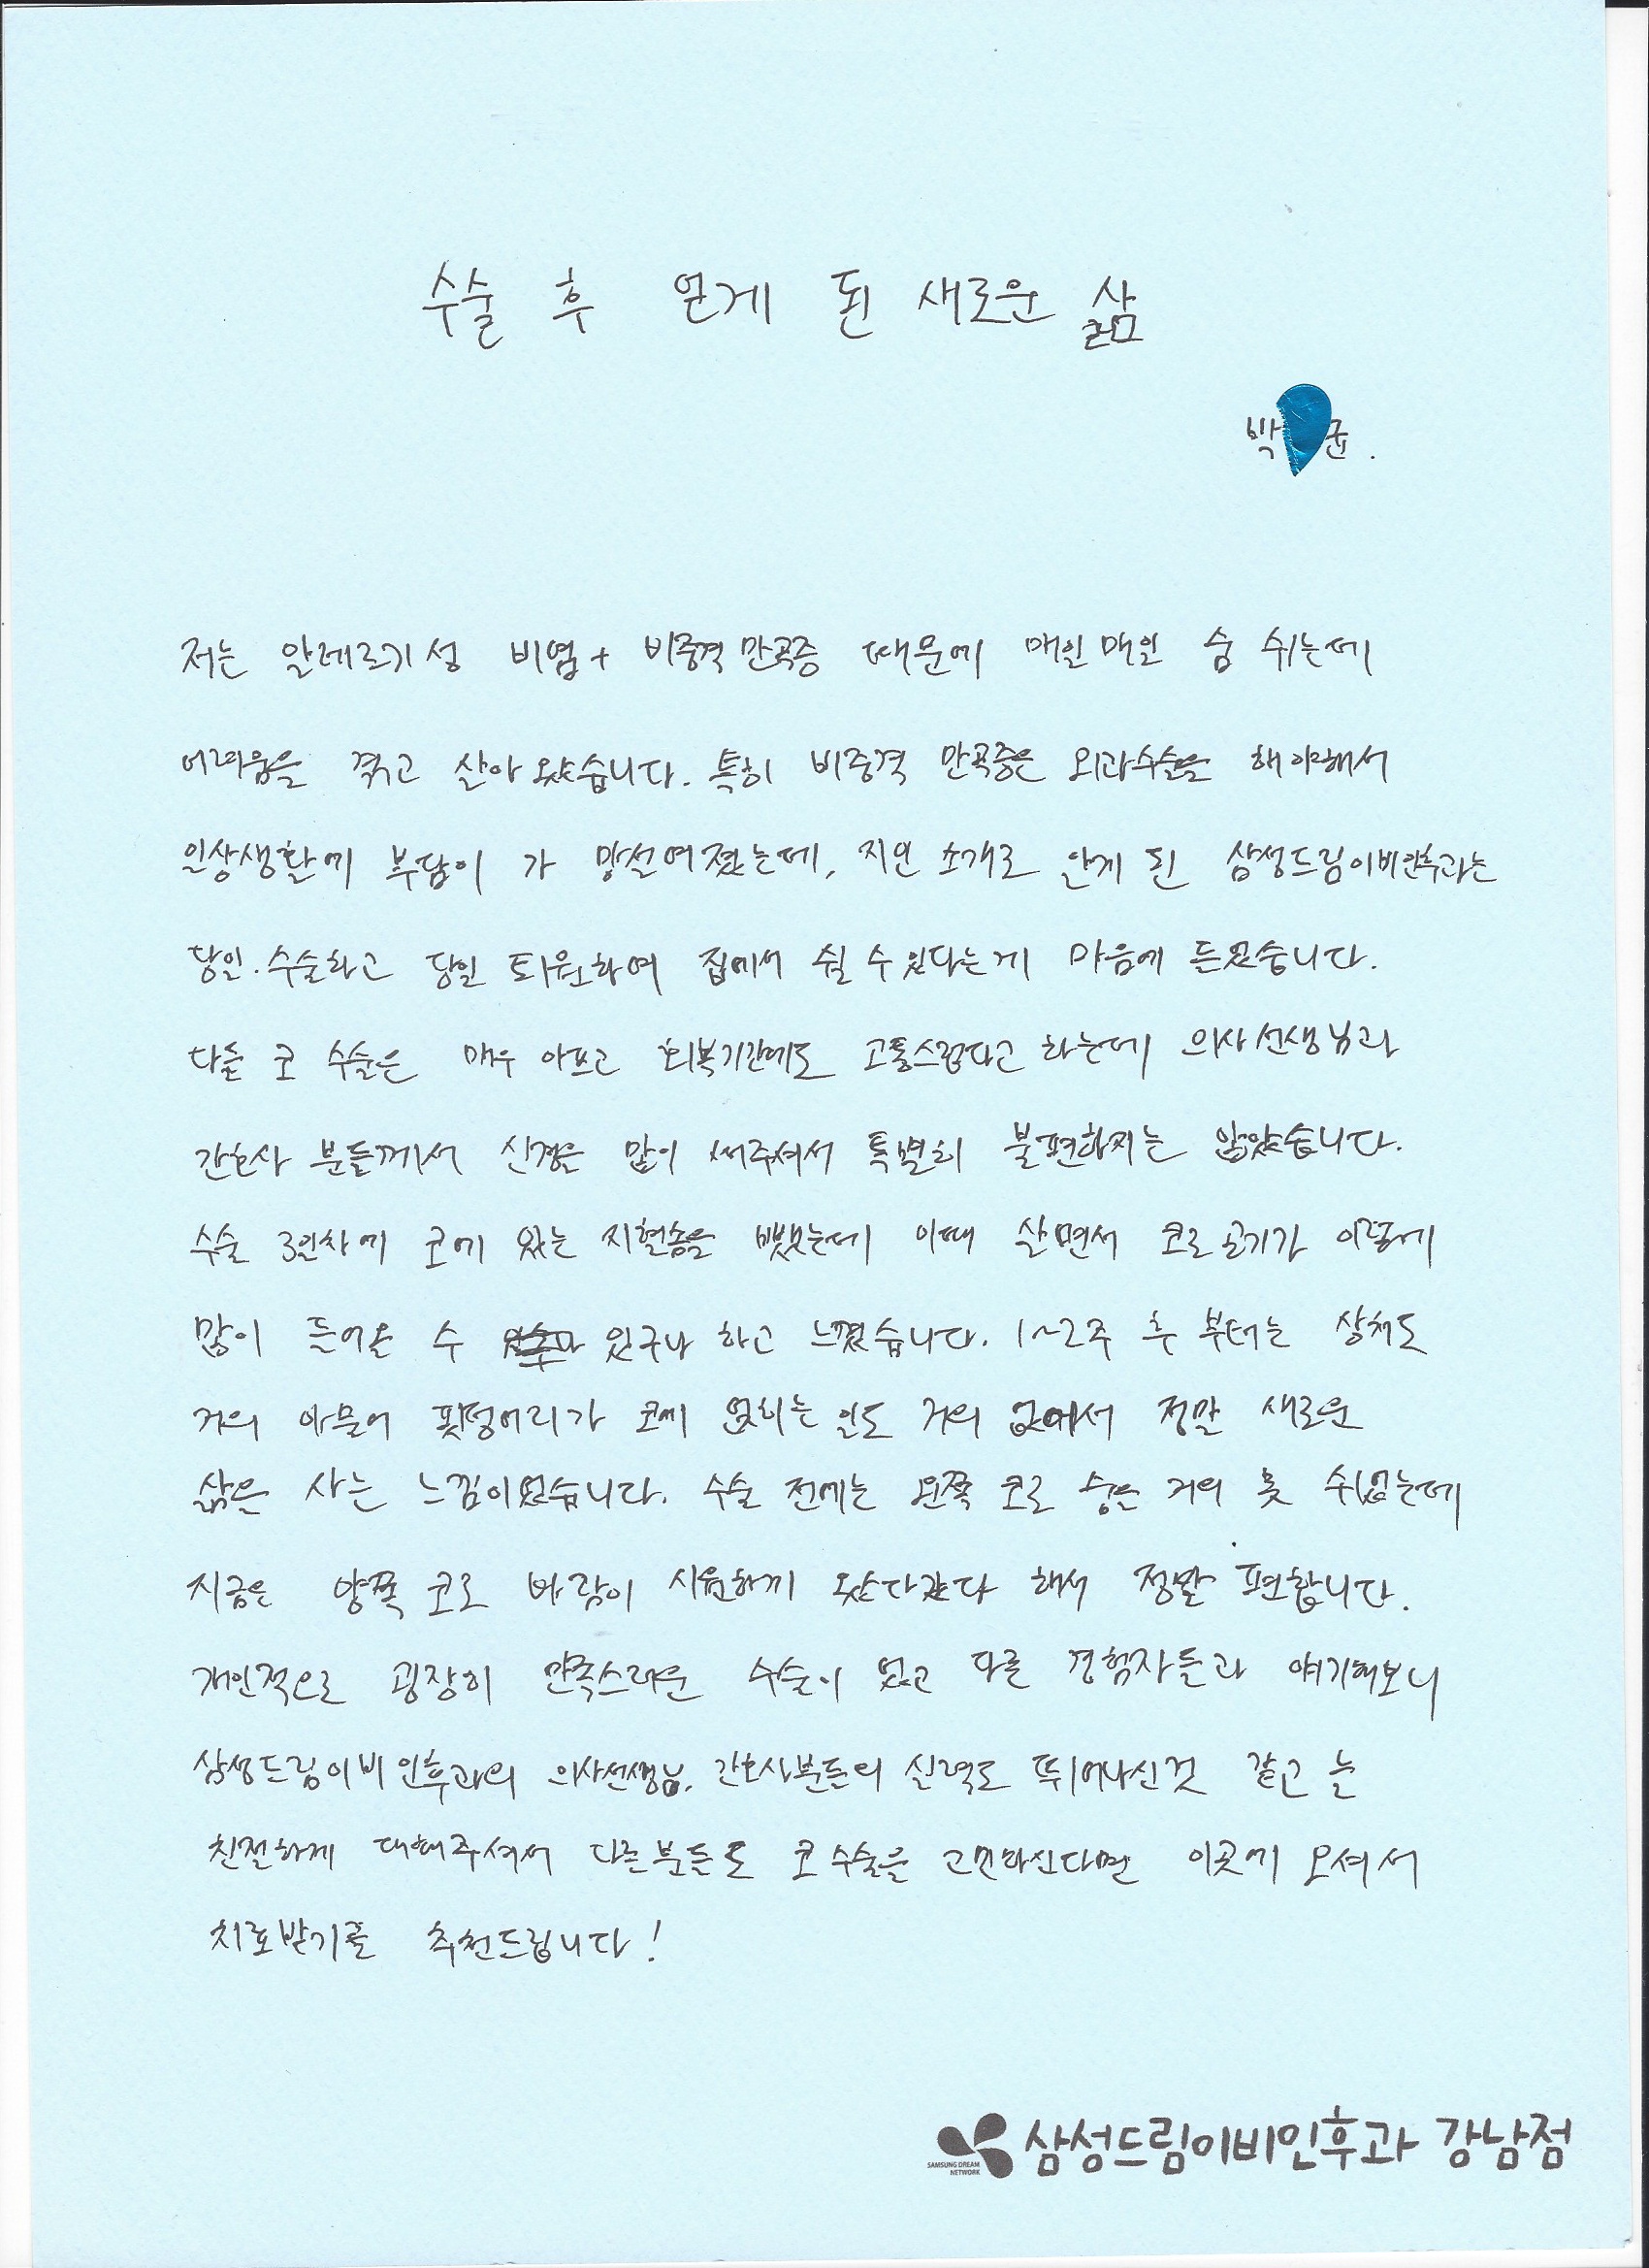 수술 후 얻게 된 새로운 삶
박 균.
저는 알레르기성 비염 + 비중격만곡증 때문에 매일매일 숨 쉬는데
어려움을 겪고 살아 왔습니다. 특히 비중격 만곡증은 외과수술을 해야해서
일상생활에 부담이 가 망설여졌는데, 지인 소개로 알게 된 삼성드림이비인후과는
당일.수술하고 당일 퇴원하여 집에서 쉴 수 있다는게 마음에 들었습니다.
다들 코 수술은 매우 아프고 회복기간에도 고통스럽다고 하는데 의사선생님과
간호사 분들께서 신경을 많이 써주셔서 특별히 불편하지는 않았습니다.
수술 3일차에 코에 있는 지혈솜을 뺐는데 이때 살면서 코로 공기가 이렇게
많이 들어올 수 있구나 하고 느꼈습니다. 1~2주 후 부터는 상처도
거의 아물어 핏덩어리가 코에 맺히는 일도 거의 없어서 정말 새로운
삶을 사는 느낌이었습니다. 수술 전에는 왼쪽 코로 숨을 거의 못 쉬었는데
지금은 양쪽 코로 바람이 시원하게 왔다갔다 해서 정말 편합니다.
개인적으로 굉장히 만족스러운 수술이 었고 다른 경험자들과 얘기해보니
삼성드림이비인후과의 의사선생님, 간호사분들의 실력도 뛰어나신것 같고 늘
친절하게 대해주셔서 다른분들도 코 수술을 고민하신다면 이곳에 오셔서
치료받기를 추천드립니다!
SAMSUNG DREAM
NETWORK
삼성드림이비인후과 강남점